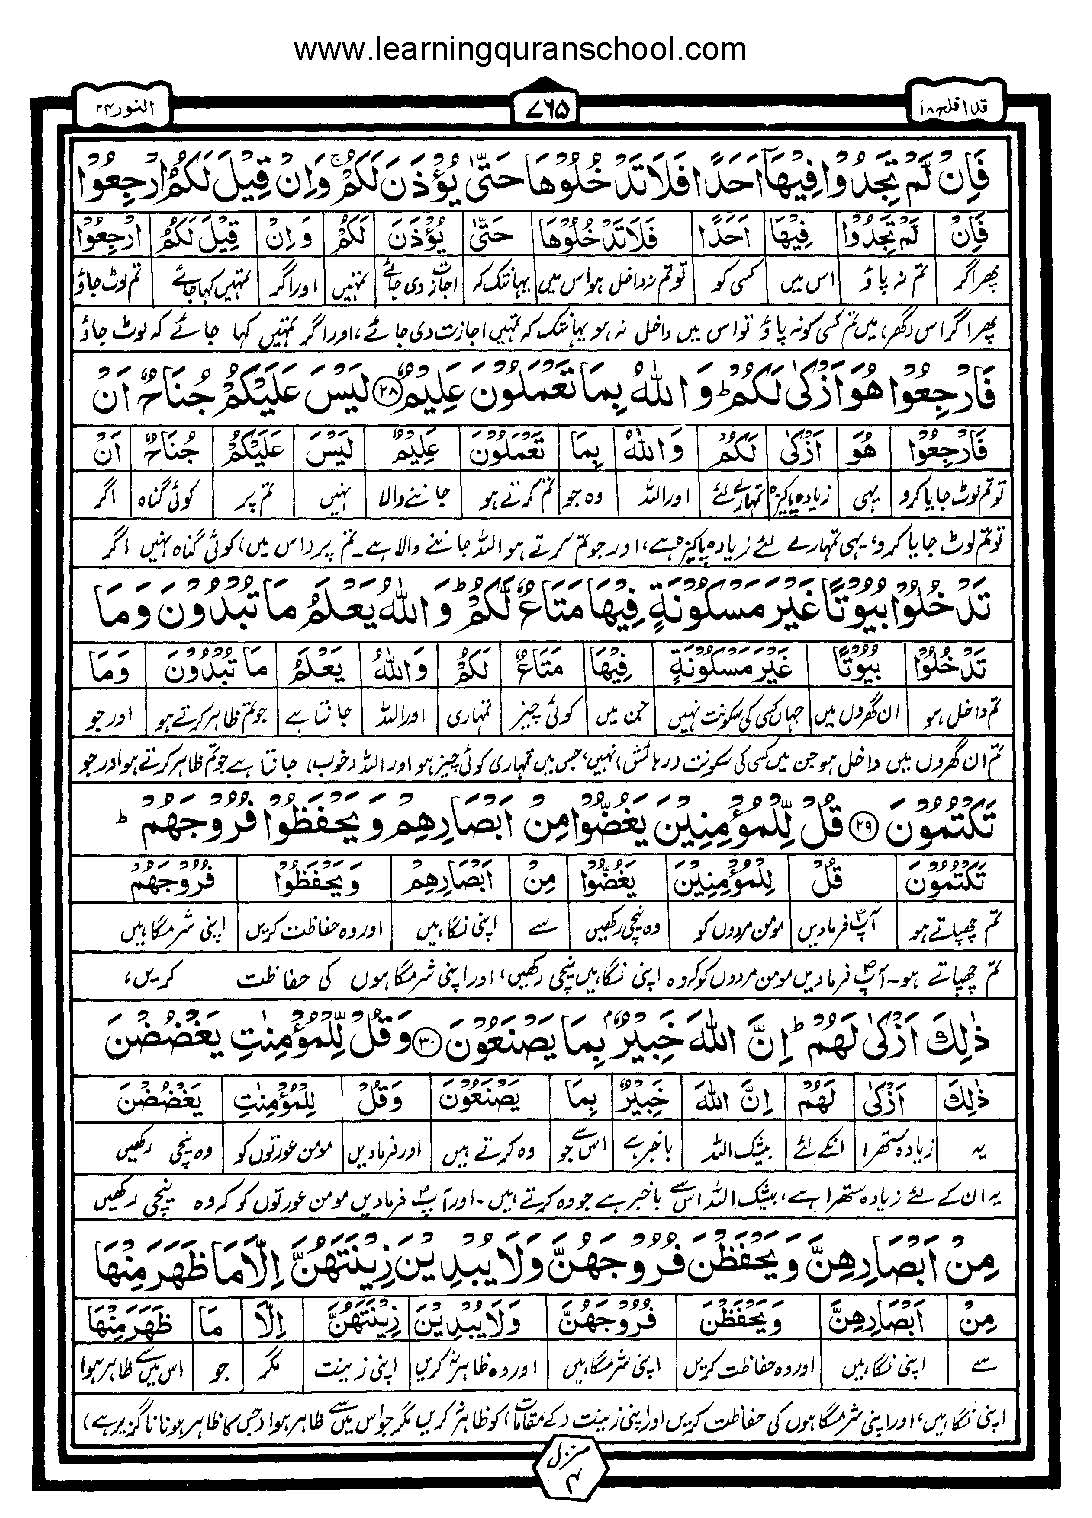 www.learningquranschool.com
قد افلح ۱۸
۷۶۵
النور ۲۴
فَاِنْ لَّمْ تَجِدُوْا فِيْهَاۤ اَحَدًا فَلَا تَدْخُلُوْهَا حَتّٰى يُؤْذَنَ لَكُمْ ۚ وَاِنْ قِيْلَ لَكُمُ ارْجِعُوْا
فَاِنْ لَّمْ تَجِدُوْا فِيْهَا اَحَدًا فَلَا تَدْخُلُوْهَا حَتّٰى يُؤْذَنَ لَكُمْ وَاِنْ قِيْلَ لَكُمُ ارْجِعُوْا
پھر اگر تم نہ پاؤ اس میں کسی کو تو تم نہ داخل ہو اس میں یہانتک کہ اجازت دی جائے تمہیں اور اگر تمہیں کہا جائے تم لوٹ جاؤ
پھر اگر اس (گھر) میں تم کسی کو نہ پاؤ تو اس میں داخل نہ ہو یہانتک کہ تمہیں اجازت دی جائے، اور اگر تمہیں کہا جائے کہ لوٹ جاؤ
فَارْجِعُوْا هُوَ اَزْكٰى لَكُمْ ؕ وَاللّٰهُ بِمَا تَعْمَلُوْنَ عَلِيْمٌ ۲۸ لَيْسَ عَلَيْكُمْ جُنَاحٌ اَنْ
فَارْجِعُوْا هُوَ اَزْكٰى لَكُمْ وَاللّٰهُ بِمَا تَعْمَلُوْنَ عَلِيْمٌ لَيْسَ عَلَيْكُمْ جُنَاحٌ اَنْ
تو تم لوٹ جایا کرو یہی زیادہ پاکیزہ تمہارے لئے اور اللہ وہ جو تم کرتے ہو جاننے والا نہیں تم پر کوئی گناہ اگر
تو تم لوٹ جایا کرو، یہی تمہارے لئے زیادہ پاکیزہ ہے، اور جو تم کرتے ہو اللہ جاننے والا ہے۔ تم پر (اس میں) کوئی گناہ نہیں اگر
تَدْخُلُوْا بُيُوْتًا غَيْرَ مَسْكُوْنَةٍ فِيْهَا مَتَاعٌ لَّكُمْ ؕ وَاللّٰهُ يَعْلَمُ مَا تُبْدُوْنَ وَمَا
تَدْخُلُوْا بُيُوْتًا غَيْرَ مَسْكُوْنَةٍ فِيْهَا مَتَاعٌ لَكُمْ وَاللّٰهُ يَعْلَمُ مَا تُبْدُوْنَ وَمَا
تم داخل ہو ان گھروں میں جہاں کسی کی سکونت نہیں جن میں کوئی چیز تمہاری اور اللہ جانتا ہے جو تم ظاہر کرتے ہو اور جو
تم ان گھروں میں داخل ہو جن میں کسی کی سکونت (رہائش) نہیں، جس میں تمہاری کوئی چیز ہو اور اللہ (خوب) جانتا ہے جو تم ظاہر کرتے ہو اور جو
تَكْتُمُوْنَ ۲۹ قُلْ لِّلْمُؤْمِنِيْنَ يَغُضُّوْا مِنْ اَبْصَارِهِمْ وَيَحْفَظُوْا فُرُوْجَهُمْ ؕ
تَكْتُمُوْنَ قُلْ لِلْمُؤْمِنِيْنَ يَغُضُّوْا مِنْ اَبْصَارِهِمْ وَيَحْفَظُوْا فُرُوْجَهُمْ
تم چھپاتے ہو آپؐ فرمادیں مومن مردوں کو وہ نیچی رکھیں سے اپنی نگاہیں اور وہ حفاظت کریں اپنی شرمگاہیں
تم چھپاتے ہو۔ آپؐ فرمادیں مومن مردوں کو کہ وہ اپنی نگاہیں نیچی رکھیں، اور اپنی شرمگاہوں کی حفاظت کریں،
ذٰلِكَ اَزْكٰى لَهُمْ ؕ اِنَّ اللّٰهَ خَبِيْرٌۢ بِمَا يَصْنَعُوْنَ ۳۰ وَقُلْ لِّلْمُؤْمِنٰتِ يَغْضُضْنَ
ذٰلِكَ اَزْكٰى لَهُمْ اِنَّ اللّٰهَ خَبِيْرٌ بِمَا يَصْنَعُوْنَ وَقُلْ لِلْمُؤْمِنٰتِ يَغْضُضْنَ
یہ زیادہ ستھرا انکے لئے بیشک اللہ باخبر ہے اس سے جو وہ کرتے ہیں اور فرمادیں مومن عورتوں کو وہ نیچی رکھیں
یہ ان کے لئے زیادہ ستھرا ہے، بیشک اللہ اس سے باخبر ہے جو وہ کرتے ہیں۔ اور آپؐ فرمادیں مومن عورتوں کو کہ وہ نیچی رکھیں
مِنْ اَبْصَارِهِنَّ وَيَحْفَظْنَ فُرُوْجَهُنَّ وَلَا يُبْدِيْنَ زِيْنَتَهُنَّ اِلَّا مَا ظَهَرَ مِنْهَا
مِنْ اَبْصَارِهِنَّ وَيَحْفَظْنَ فُرُوْجَهُنَّ وَلَا يُبْدِيْنَ زِيْنَتَهُنَّ اِلَّا مَا ظَهَرَ مِنْهَا
سے اپنی نگاہیں اور وہ حفاظت کریں اپنی شرمگاہیں اور وہ ظاہر نہ کریں اپنی زینت مگر جو اس میں سے ظاہر ہوا
اپنی نگاہیں، اور اپنی شرمگاہوں کی حفاظت کریں اور اپنی زینت (کے مقامات) کو ظاہر نہ کریں مگر جو اس میں سے ظاہر ہوا (جس کا ظاہر ہونا ناگزیر ہے)
منزل ۴